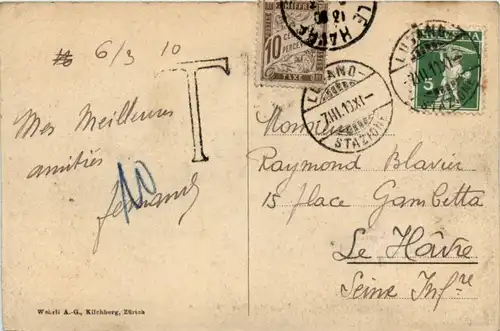 6/3 10
T
Mes Meilleures
amitiés
Fernand
10
CHIFFRE
10 CENTIMES
PERCEVOIR
TAXE
LE HAVRE
LUGANO
STAZIONE
LUGANO
STAZIONE
5
Monsieur
Raymond Blavier
15 place Gambetta
Le Hâvre
Seine Infre
Wehrli A.-G., Kilchberg, Zürich